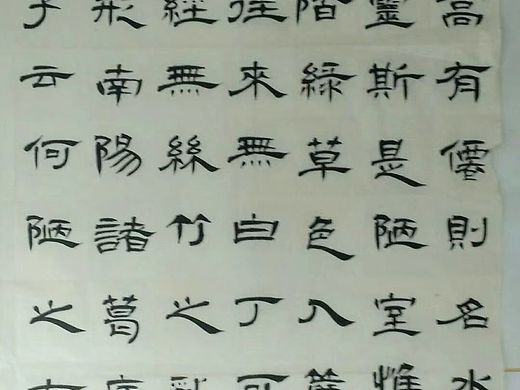 高有僊則名水
靈斯是陋室惟
階綠草色入簾
往來無白丁可
經無絲竹之亂
形南陽諸葛廬
子云何陋之有